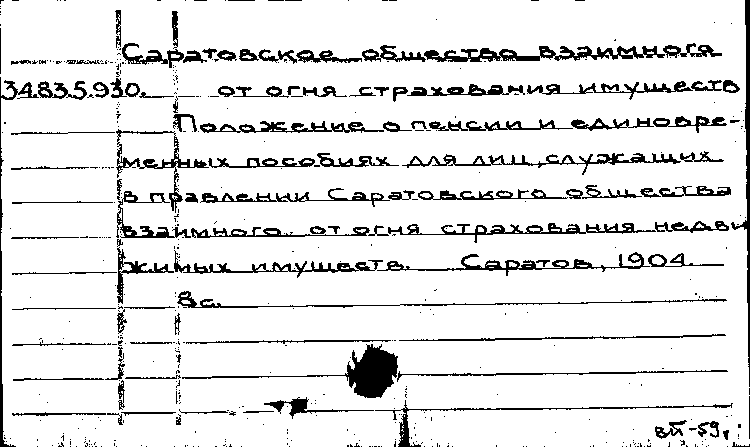 Саратовское общество взаимного
34.83.5.930. от огня страхования имуществ
Положение о пенсии и единовре-
менных пособиях для лиц, служащих
в правлении Саратовского общества
взаимного от огня страхования недви
жимых имуществ. Саратов, 1904.
8с.
вй-59г.